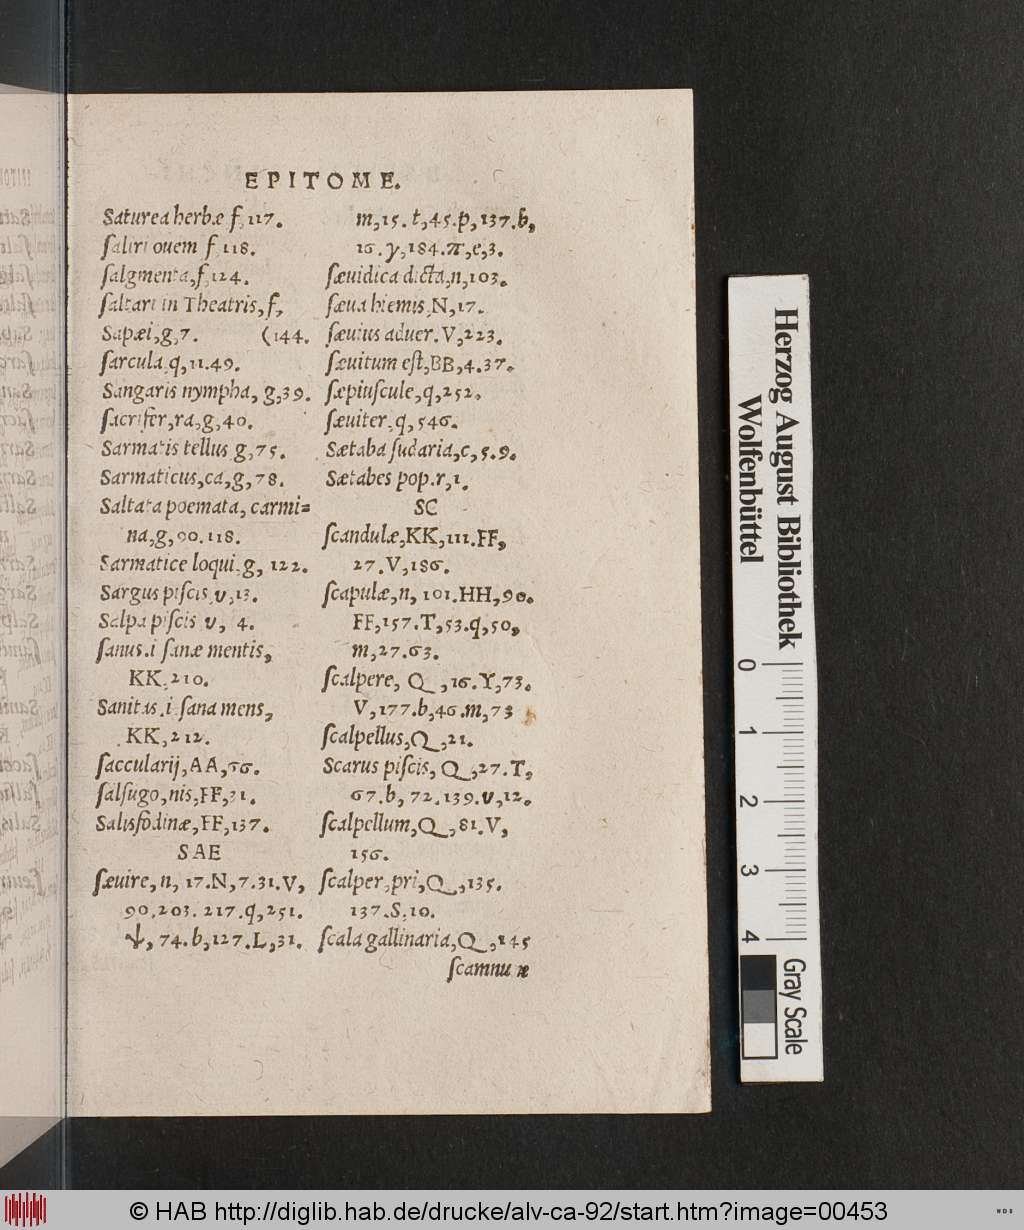 EPITOME.
Saturea herbæ f, 117.
ſaliri ouem f 118.
ſalgmenta, f, 124.
ſaltari in Theatris, f,
Sapæi, g, 7. (144.
ſarcula, q, 11.49.
Sangaris nympha, g, 39.
ſacrifer, ra, g, 40.
Sarmatis tellus g, 75.
Sarmaticus, ca, g, 78.
Saltata poemata, carmi=
na, g, 90.118.
Sarmatice loqui, g, 122.
Sargus piſcis, v, 13.
Salpa piſcis v, 4.
ſanus .i ſanæ mentis,
KK, 210.
Sanitas .i. ſana mens,
KK, 212.
ſaccularij, AA, 56.
ſalſugo, nis, FF, 31.
Salisfodinæ, FF, 137.
SAE
ſæuire, n, 17.N, 7.31.V,
90.203.217.q, 251.
ψ, 74.b, 127.L, 31.
m, 15.t, 45.p, 137.b,
16.y, 184.π, e, 3.
ſæuidica dicta, n, 103.
ſæua hiemis, N, 17.
ſæuius aduer. V, 223.
ſæuitum eſt, BB, 4.37.
ſæpiuſcule, q, 252.
ſæuiter, q, 546.
Sætaba ſudaria, c, 5.9.
Sætabes pop. r, 1.
SC
ſcandulæ, KK, 111.FF,
27.V, 186.
ſcapulæ, n, 101.HH, 90.
FF, 157.T, 53.q, 50,
m, 27.63.
ſcalpere, Q, 16.Y, 73.
V, 177.b, 46.m, 73
ſcalpellus, Q, 21.
Scarus piſcis, Q, 27.T,
67.b, 72.139.v, 12.
ſcalpellum, Q, 81.V,
156.
ſcalper, pri, Q, 135.
137.S, 10.
ſcala gallinaria, Q, 145
ſcamnum æ
Herzog August Bibliothek
Wolfenbüttel
0 1 2 3 4
Gray Scale
© HAB http://diglib.hab.de/drucke/alv-ca-92/start.htm?image=00453